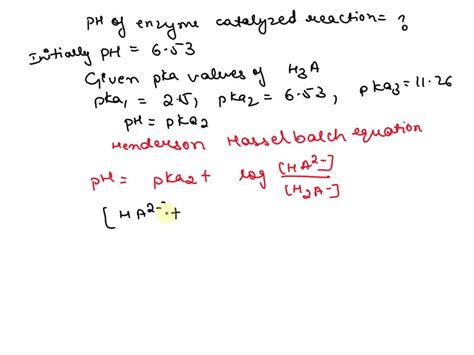 pH of enzyme catalyzed reaction = ?
Initially pH = 6.53
Given pka values of H3A
pka1 = 2.15, pka2 = 6.53, pka3 = 11.26
pH = pka2
Henderson Hasselbalch equation
pH = pka2 + log [HA2-]/[H2A-]
[HA2-] +